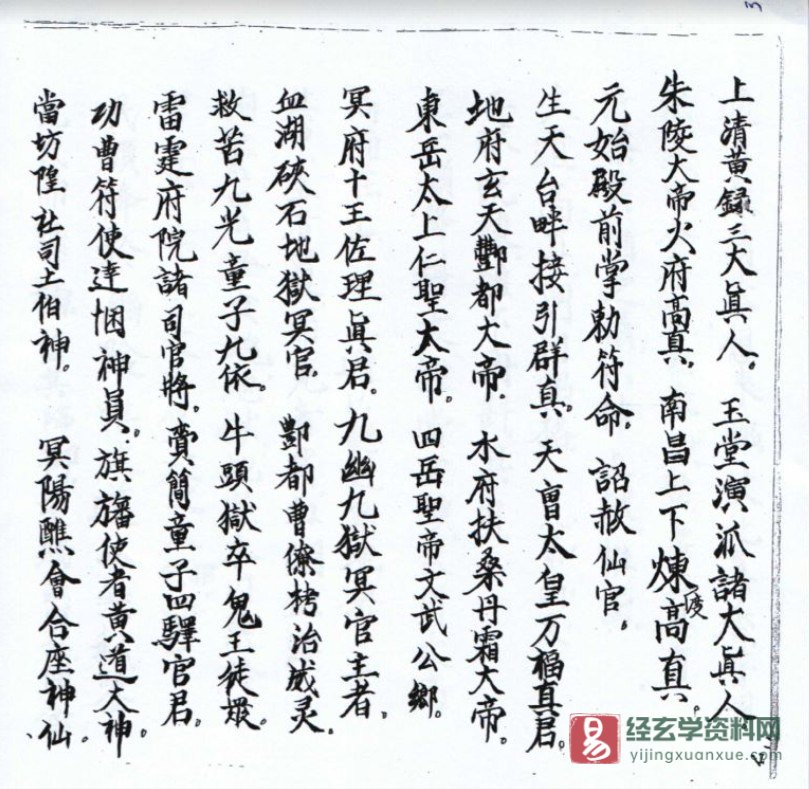 上清黃録三大眞人。玉堂演派諸大眞人
朱陵大帝火府高真。南昌上下煉度高真。
元始殿前掌勅符命。詔赦仙官。
生天台畔接引群真。天曹太皇万福真君。
地府玄天酆都大帝。水府扶桑丹霜大帝。
東岳太上仁聖大帝。四岳聖帝文武公鄉。
冥府十王佐理眞君。九幽九獄冥官主者。
血湖硤石地獄冥官。酆都曹僚栲治威灵。
救苦九光童子九依。牛頭獄卒鬼王徒眾。
雷霆府院諸司官將。賫簡童子四驛官君。
功曹符使達悃神員。旗旛使者黄道大神。
當坊隍社司土伯神。冥陽醮會合座神仙。
易 经玄学资料网
yijingxuanxue.com